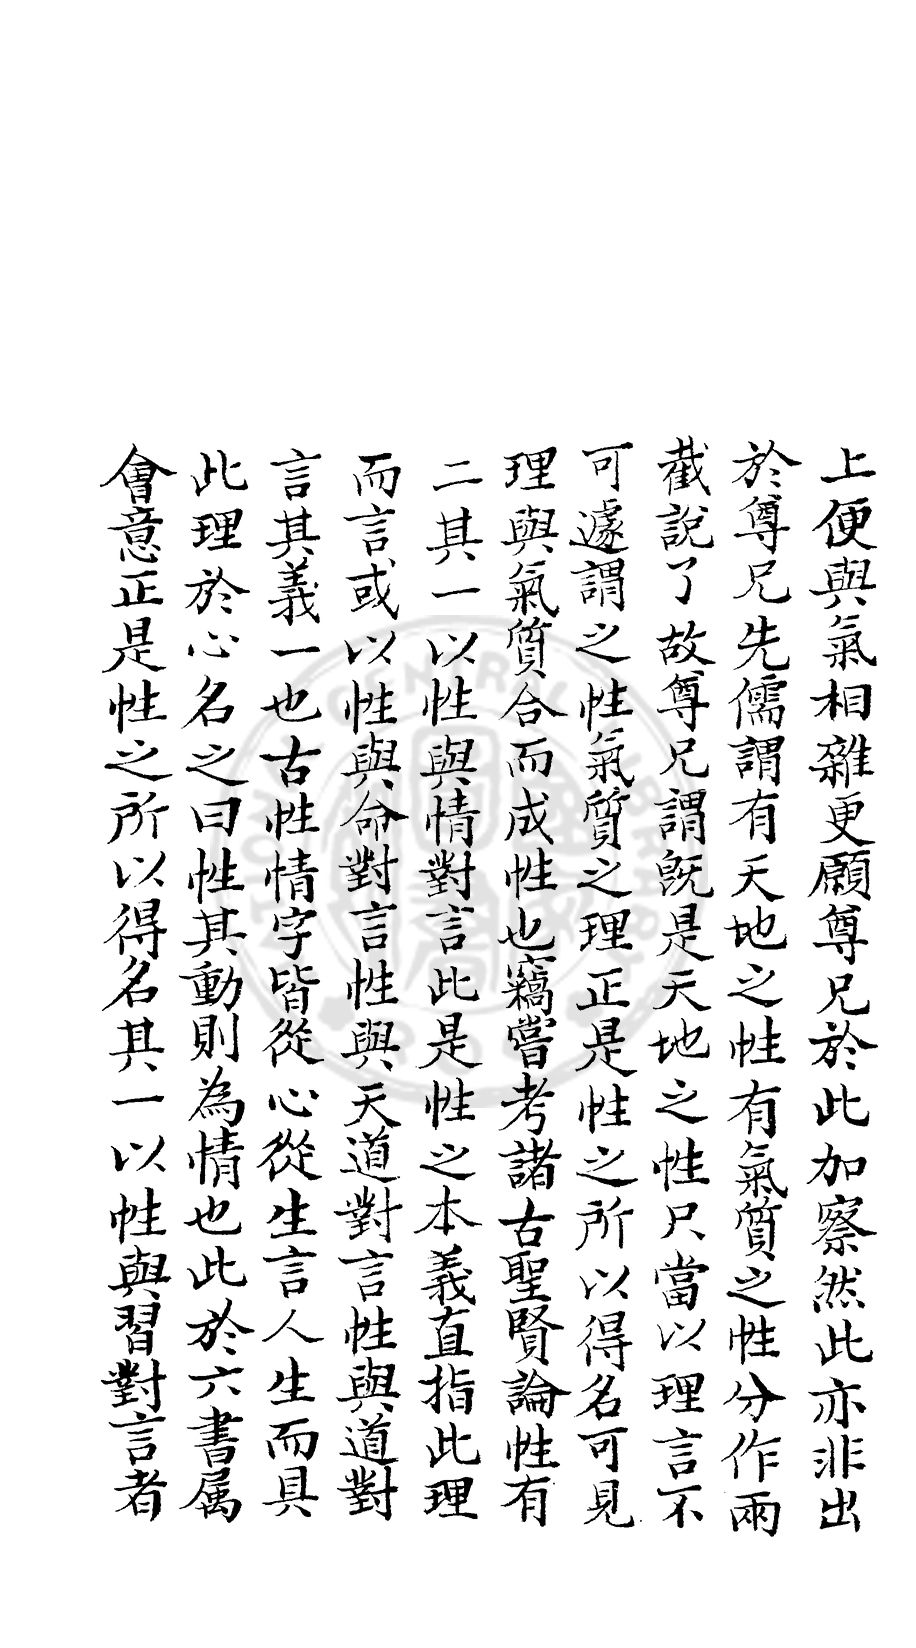 上便與氣相雜更願尊兄於此加察然此亦非出
於尊兄先儒謂有天地之性有氣質之性分作兩
截說了故尊兄謂既是天地之性只當以理言不
可遽謂之性氣質之理正是性之所以得名可見
理與氣質合而成性也竊嘗考諸古聖賢論性有
二其一以性與情對言此是性之本義直指此理
而言或以性與命對言性與天道對言性與道對
言其義一也古性情字皆從心從生言人生而具
此理於心名之曰性其動則為情也此於六書属
會意正是性之所以得名其一以性與習對言者